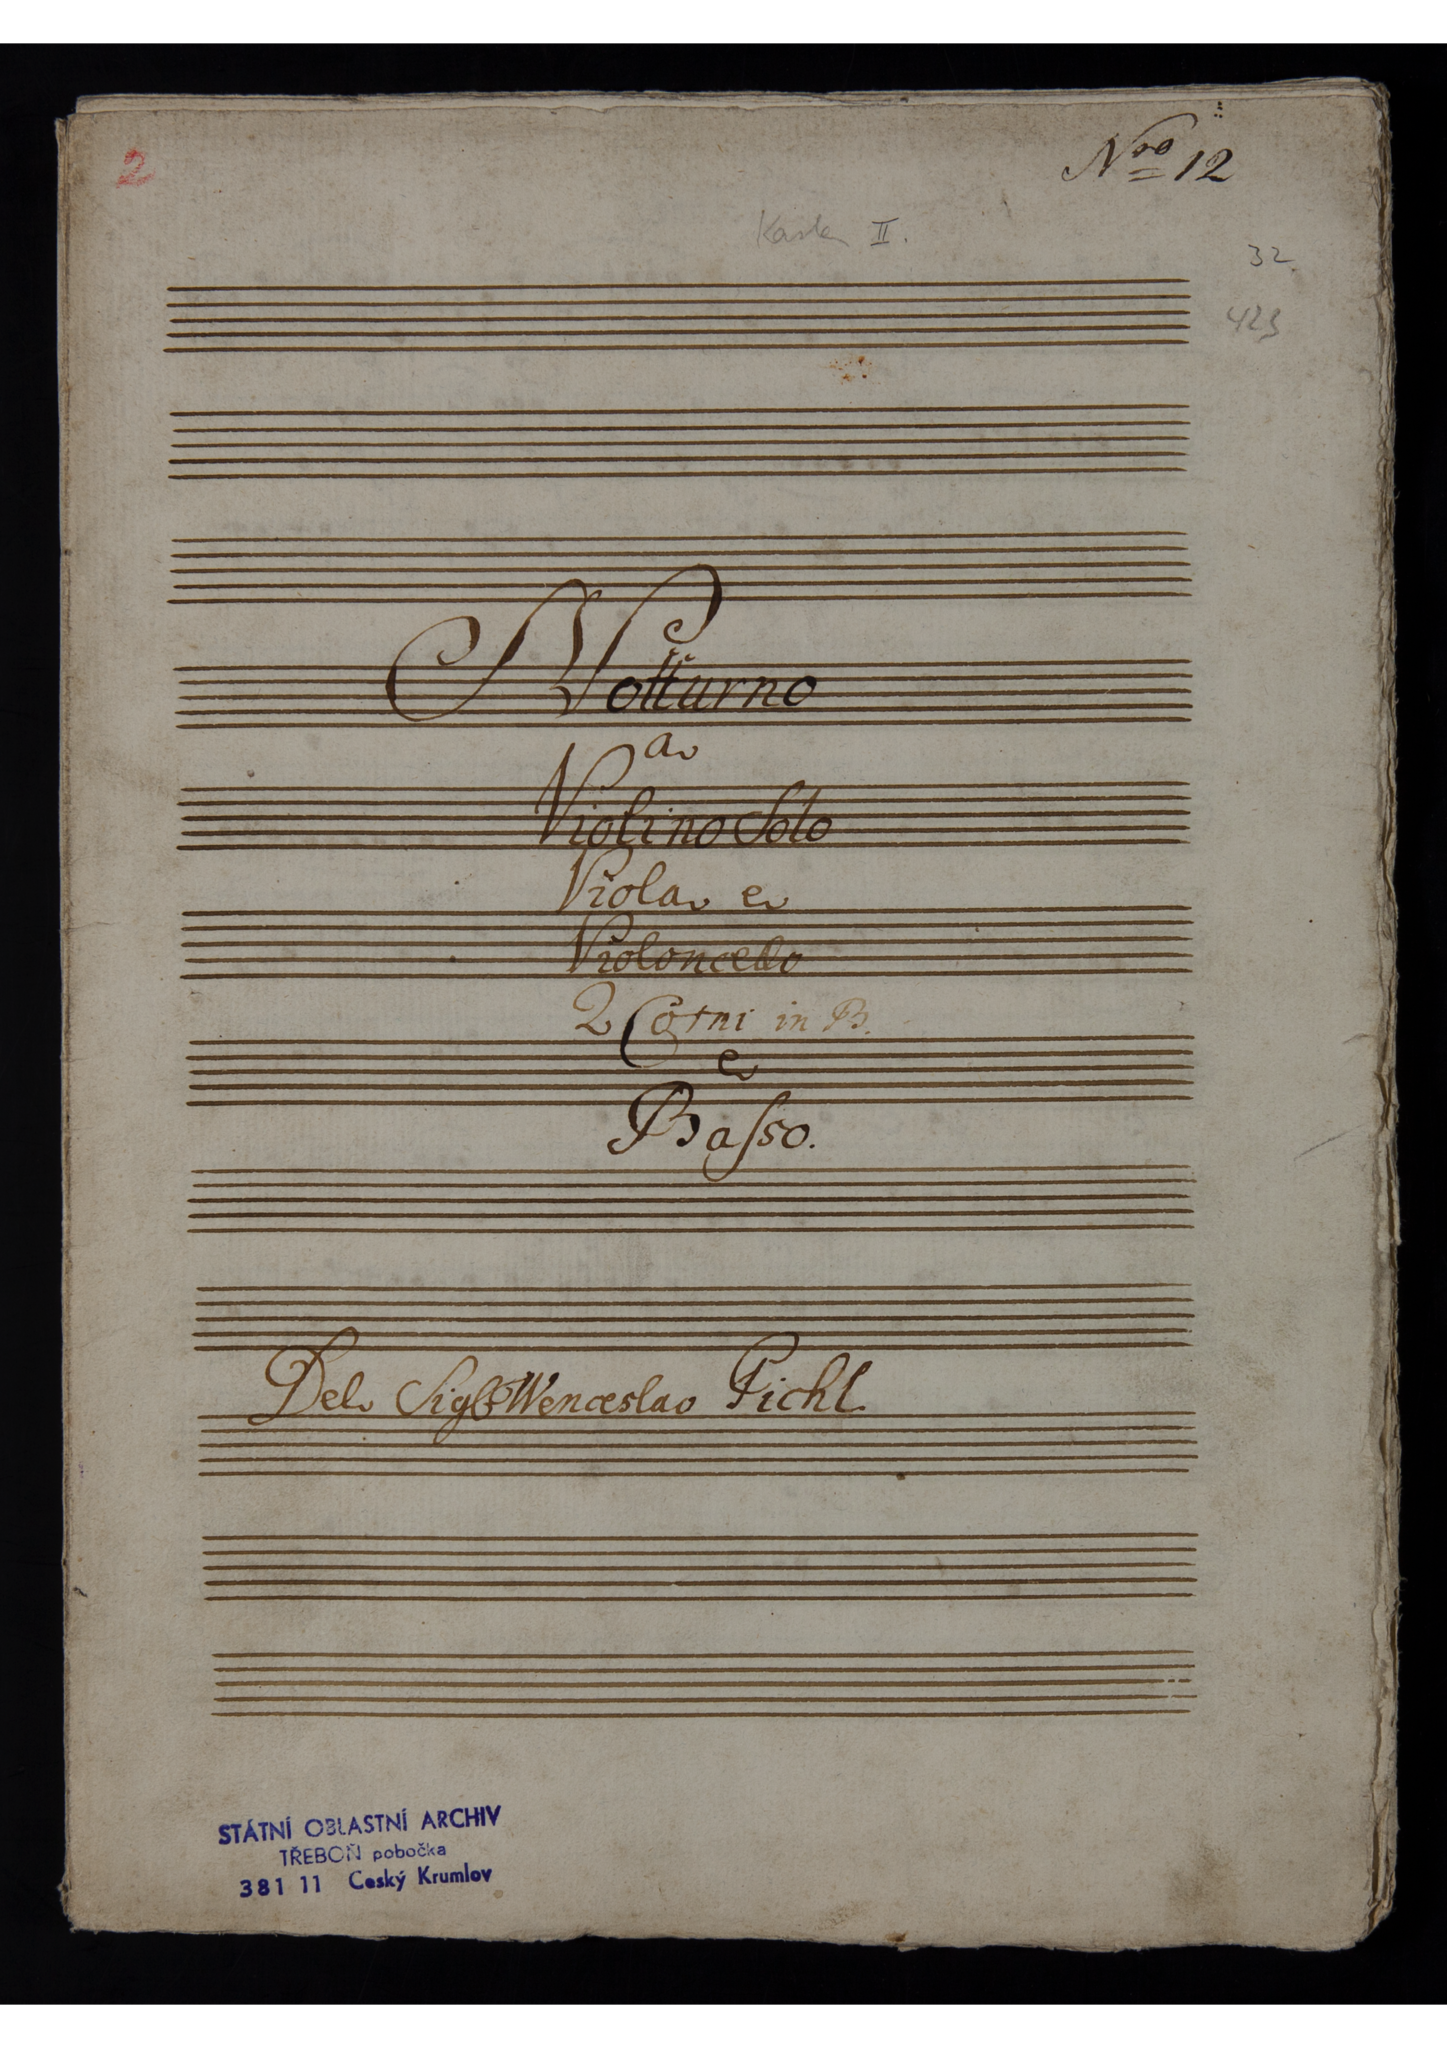 2
Nro 12
Kasten II.
32
423
Notturno
a
Violino Solo
Viola e
Violoncello
2 Corni in B.
e
Basso.
Del Sigre Wenceslao Pichl
STÁTNÍ OBLASTNÍ ARCHIV
TŘEBOŇ pobočka
381 11 Český Krumlov